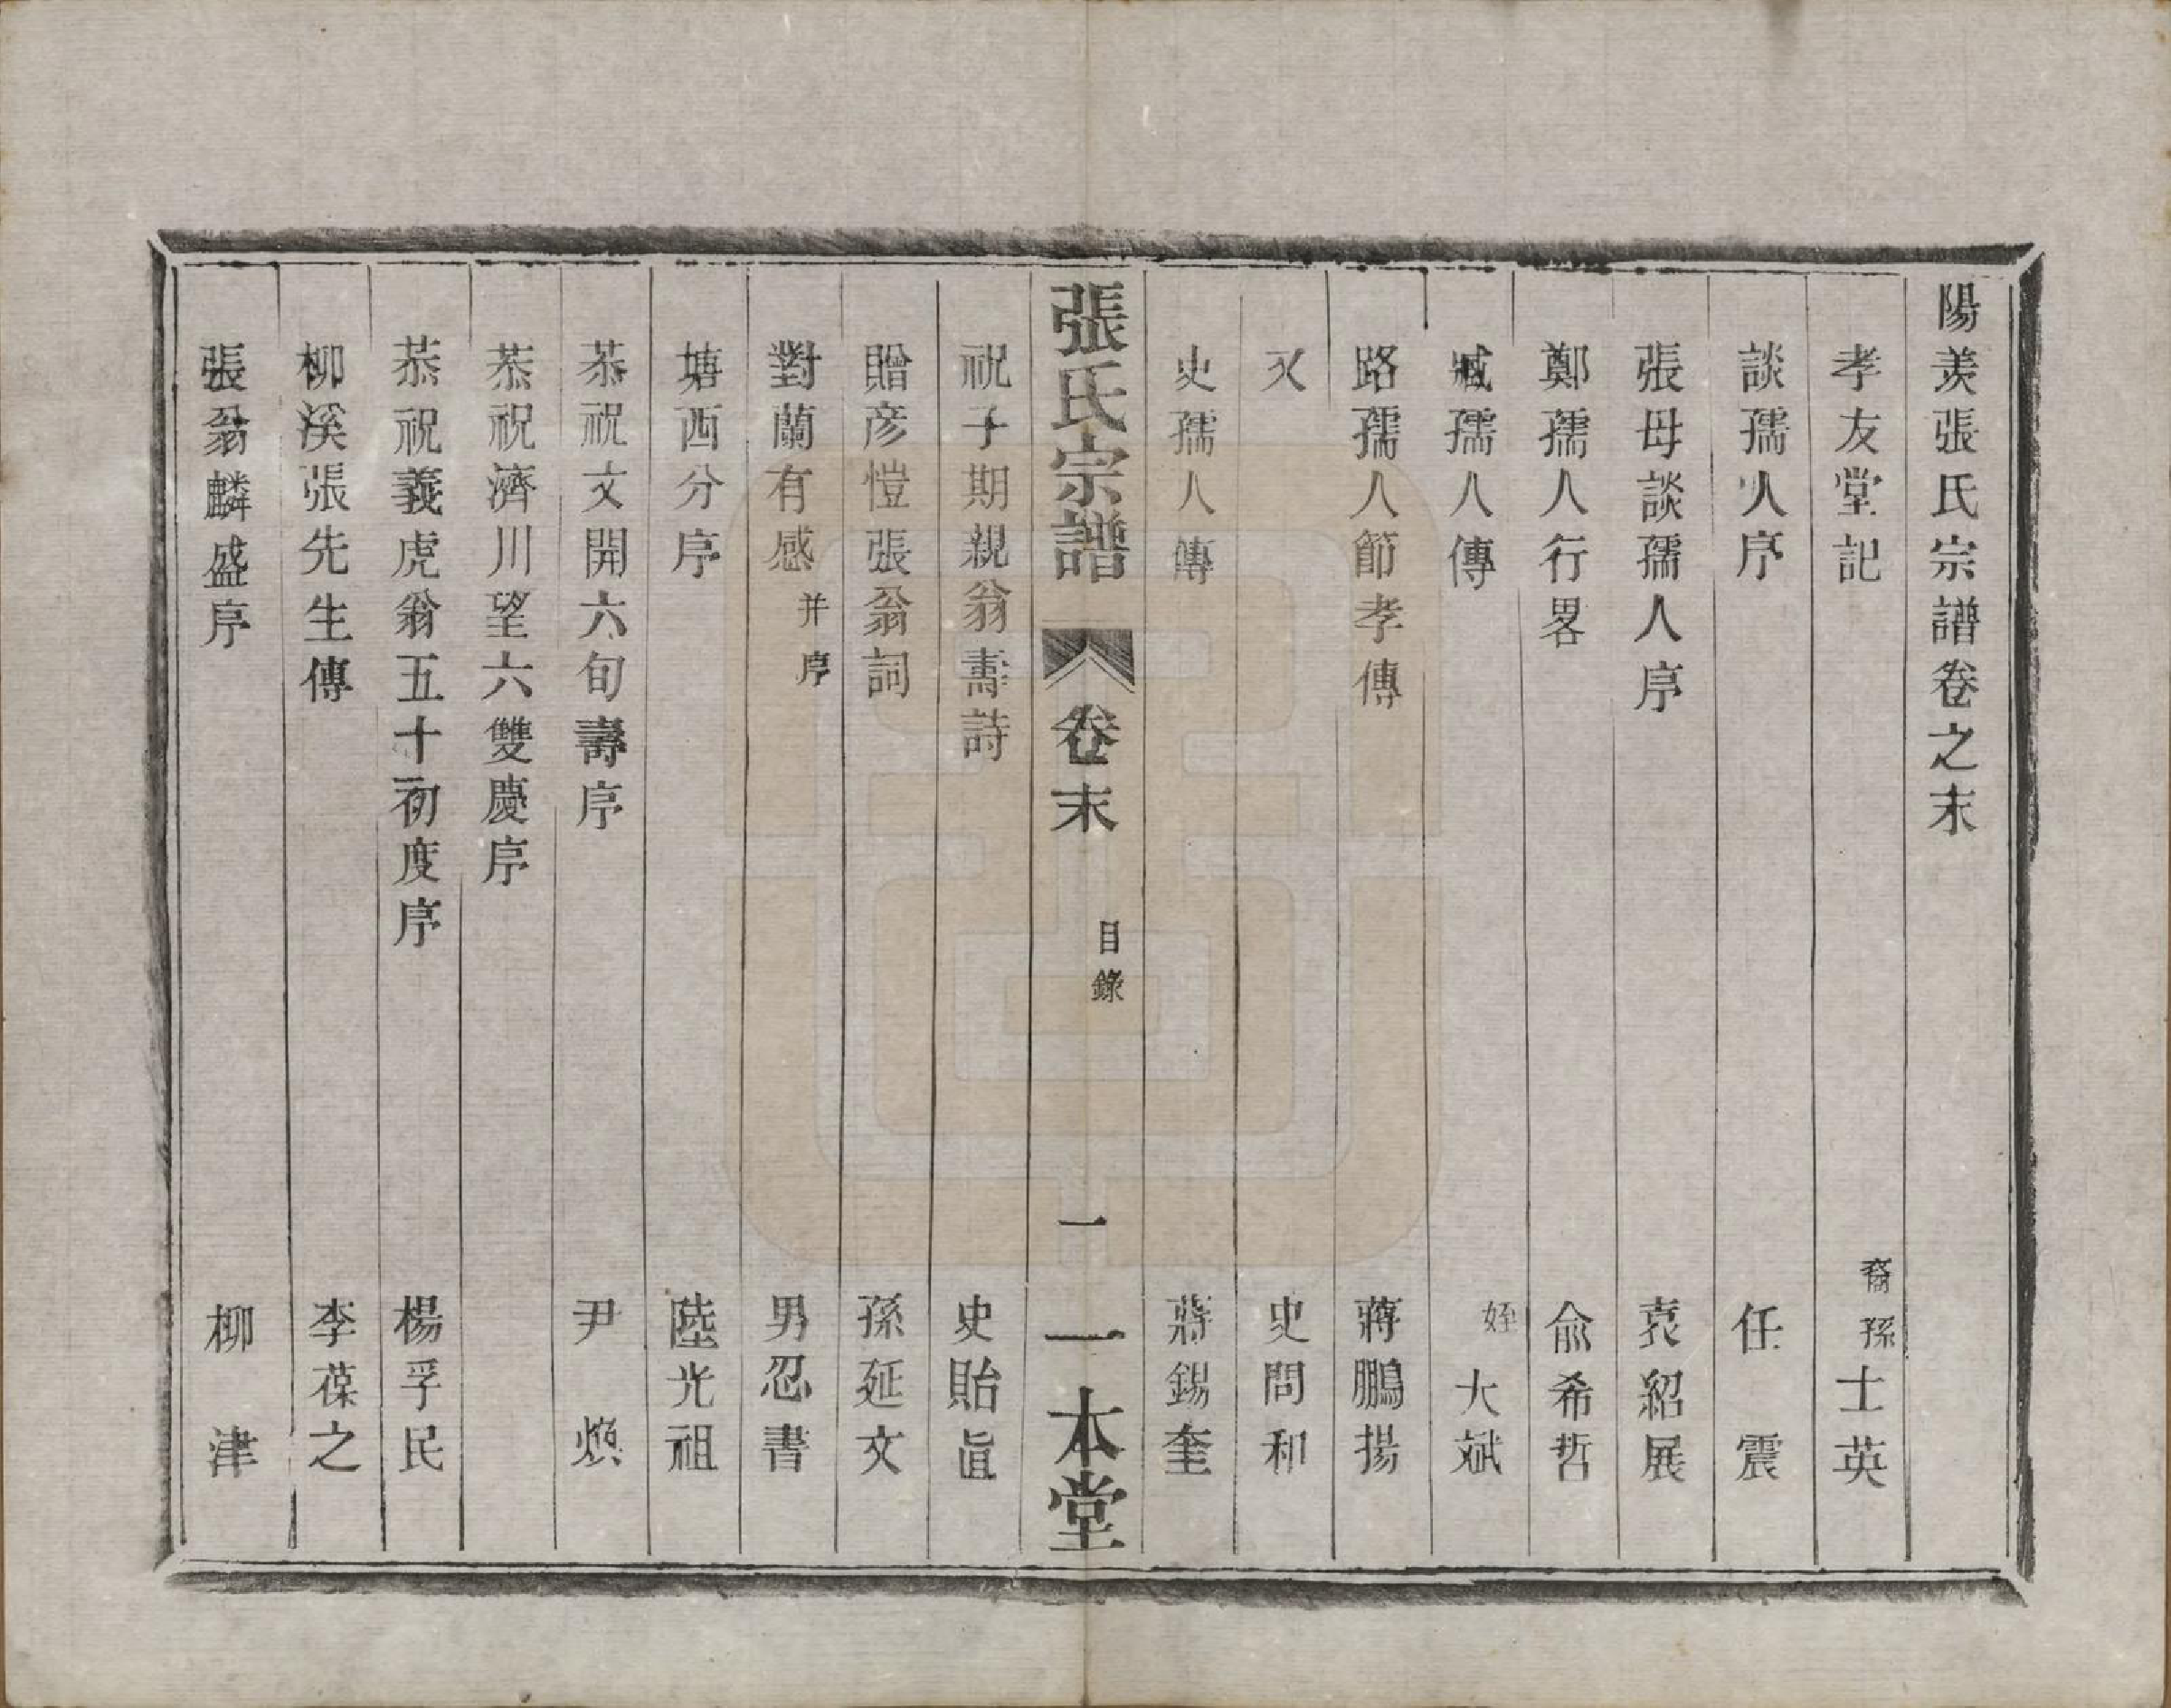 陽羨張氏宗譜卷之末
孝友堂記　裔孫士英
談孺人序　任震
張母談孺人序　袁紹展
鄭孺人行畧　俞希哲
臧孺人傳　姪大斌
路孺人節孝傳　蔣鵬揚
又　史問和
史孺人傳　蔣錫奎
張氏宗譜　卷末　目錄　一　一本堂
祝子期親翁壽詩　史貽眞
贈彦愷張翁詞　孫延文
對蘭有感并序　男忍書
塘西分序　陸光祖
恭祝文開六旬壽序　尹
恭祝濟川望六雙慶序
恭祝義虎翁五十初度序　楊孚民
柳溪張先生傳　李葆之
張翁麟盛序　柳津